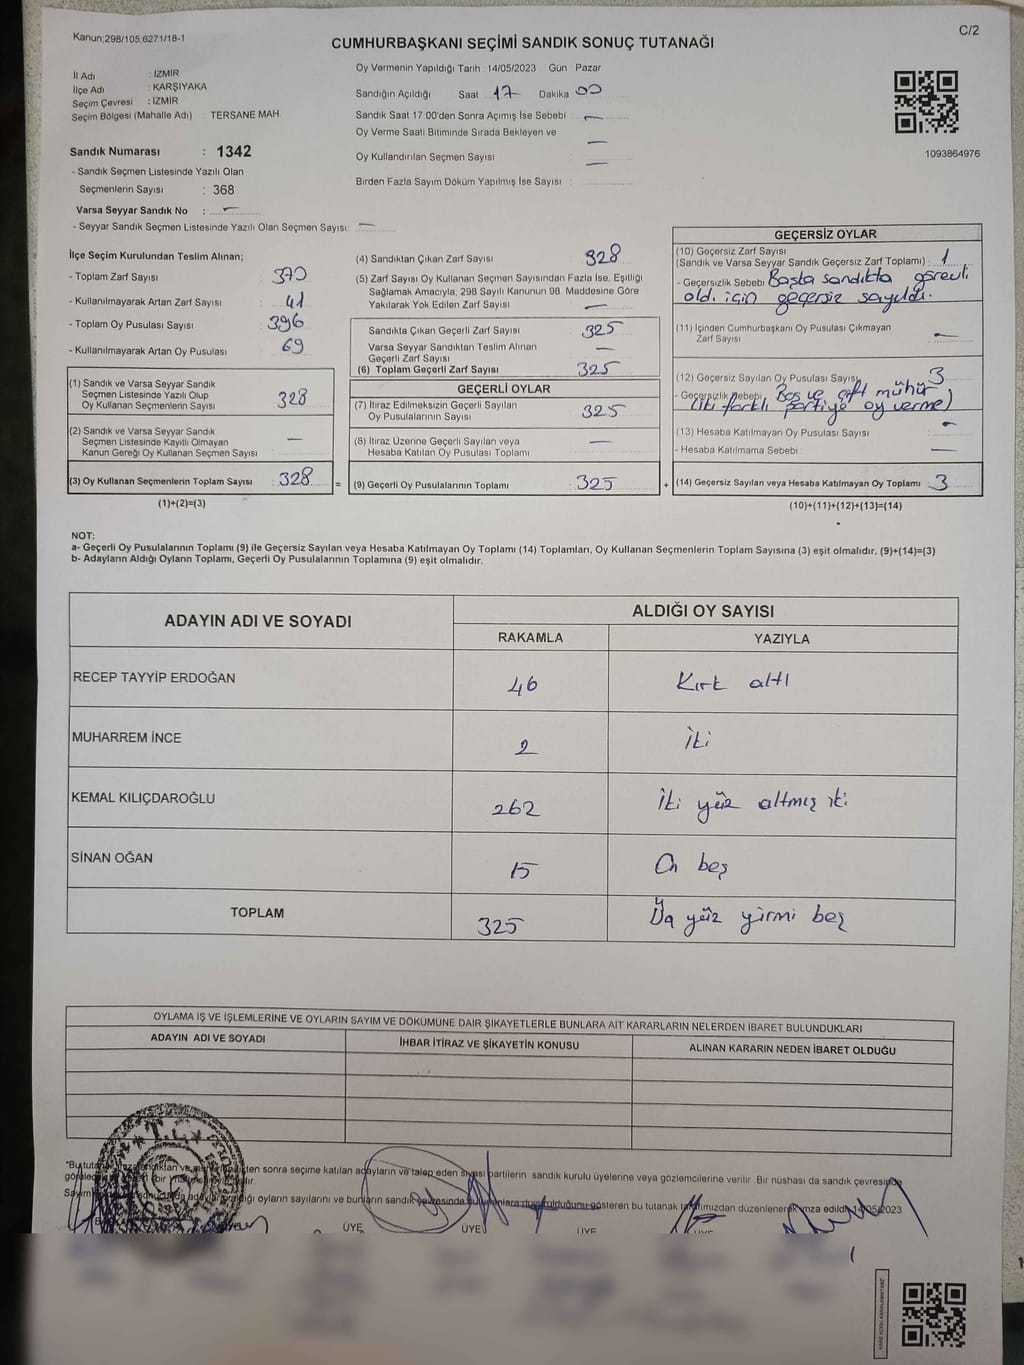 Kanun;298/105;6271/18-1
C/2
CUMHURBAŞKANI SEÇİMİ SANDIK SONUÇ TUTANAĞI
İl Adı : İZMİR
İlçe Adı : KARŞIYAKA
Seçim Çevresi : İZMİR
Seçim Bölgesi (Mahalle Adı) : TERSANE MAH.
Sandık Numarası : 1342
- Sandık Seçmen Listesinde Yazılı Olan
Seçmenlerin Sayısı : 368
Varsa Seyyar Sandık No : —
- Seyyar Sandık Seçmen Listesinde Yazılı Olan Seçmen Sayısı: —
Oy Vermenin Yapıldığı Tarih : 14/05/2023 Gün Pazar
Sandığın Açıldığı Saat 17 Dakika 00
Sandık Saat 17 00'den Sonra Açımış İse Sebebi : —
Oy Verme Saati Bitiminde Sırada Bekleyen ve —
Oy Kullandırılan Seçmen Sayısı : —
Birden Fazla Sayım Döküm Yapılmış İse Sayısı :
1093864976
İlçe Seçim Kurulundan Teslim Alınan;
- Toplam Zarf Sayısı : 370
- Kullanılmayarak Artan Zarf Sayısı : 41
- Toplam Oy Pusulası Sayısı : 396
- Kullanılmayarak Artan Oy Pusulası : 69
(1) Sandık ve Varsa Seyyar Sandık
Seçmen Listesinde Yazılı Olup
Oy Kullanan Seçmenlerin Sayısı : 328
(2) Sandık ve Varsa Seyyar Sandık
Seçmen Listesinde Kayıtlı Olmayan
Kanun Gereği Oy Kullanan Seçmen Sayısı : —
(3) Oy Kullanan Seçmenlerin Toplam Sayısı : 328
(1)+(2)=(3)
=
(4) Sandıktan Çıkan Zarf Sayısı : 328
(5) Zarf Sayısı Oy Kullanan Seçmen Sayısından Fazla İse, Eşitliği
Sağlamak Amacıyla, 298 Sayılı Kanunun 98. Maddesine Göre
Yakılarak Yok Edilen Zarf Sayısı : —
Sandıkta Çıkan Geçerli Zarf Sayısı : 325
Varsa Seyyar Sandıktan Teslim Alınan
Geçerli Zarf Sayısı : —
(6) Toplam Geçerli Zarf Sayısı : 325
GEÇERLİ OYLAR
(7) İtiraz Edilmeksizin Geçerli Sayılan
Oy Pusulalarının Sayısı : 325
(8) İtiraz Üzerine Geçerli Sayılan veya
Hesaba Katılan Oy Pusulası Toplamı : —
(9) Geçerli Oy Pusulalarının Toplamı : 325
+
GEÇERSİZ OYLAR
(10) Geçersiz Zarf Sayısı
(Sandık ve Varsa Seyyar Sandık Geçersiz Zarf Toplamı) : 1
- Geçersizlik Sebebi Başka sandıkta görevli
oldı için geçersiz sayıldı.
(11) İçinden Cumhurbaşkanı Oy Pusulası Çıkmayan
Zarf Sayısı : —
(12) Geçersiz Sayılan Oy Pusulası Sayısı 3
- Geçersizlik Sebebi Boş ve çift mühür
(iki farklı partiye oy verme)
(13) Hesaba Katılmayan Oy Pusulası Sayısı : —
- Hesaba Katılmama Sebebi : —
(14) Geçersiz Sayılan veya Hesaba Katılmayan Oy Toplamı : 3
(10)+(11)+(12)+(13)=(14)
NOT:
a- Geçerli Oy Pusulalarının Toplamı (9) ile Geçersiz Sayılan veya Hesaba Katılmayan Oy Toplamı (14) Toplamları, Oy Kullanan Seçmenlerin Toplam Sayısına (3) eşit olmalıdır. (9)+(14)=(3)
b- Adayların Aldığı Oyların Toplamı, Geçerli Oy Pusulalarının Toplamına (9) eşit olmalıdır.
ADAYIN ADI VE SOYADI
ALDIĞI OY SAYISI
RAKAMLA YAZIYLA
RECEP TAYYİP ERDOĞAN 46 Kırk altı
MUHARREM İNCE 2 İki
KEMAL KILIÇDAROĞLU 262 İki yüz altmış iki
SİNAN OĞAN 15 On beş
TOPLAM 325 Üç yüz yirmi beş
OYLAMA İŞ VE İŞLEMLERİNE VE OYLARIN SAYIM VE DÖKÜMÜNE DAİR ŞİKAYETLERLE BUNLARA AİT KARARLARIN NELERDEN İBARET BULUNDUKLARI
ADAYIN ADI VE SOYADI
İHBAR İTİRAZ VE ŞİKAYETİN KONUSU
ALINAN KARARIN NEDEN İBARET OLDUĞU
T.C.
sonra seçime katılan adayların ve talep eden siyasi partilerin sandık kurulu üyelerine veya gözlemcilerine verilir. Bir nüshası da sandık çevresinde
oyların sayılarını ve bunların sandık çevresinde gösteren bu tutanak tarafımızdan düzenlenerek imza edildi. 14/05/2023
ÜYE ÜYE ÜYE ÜYE